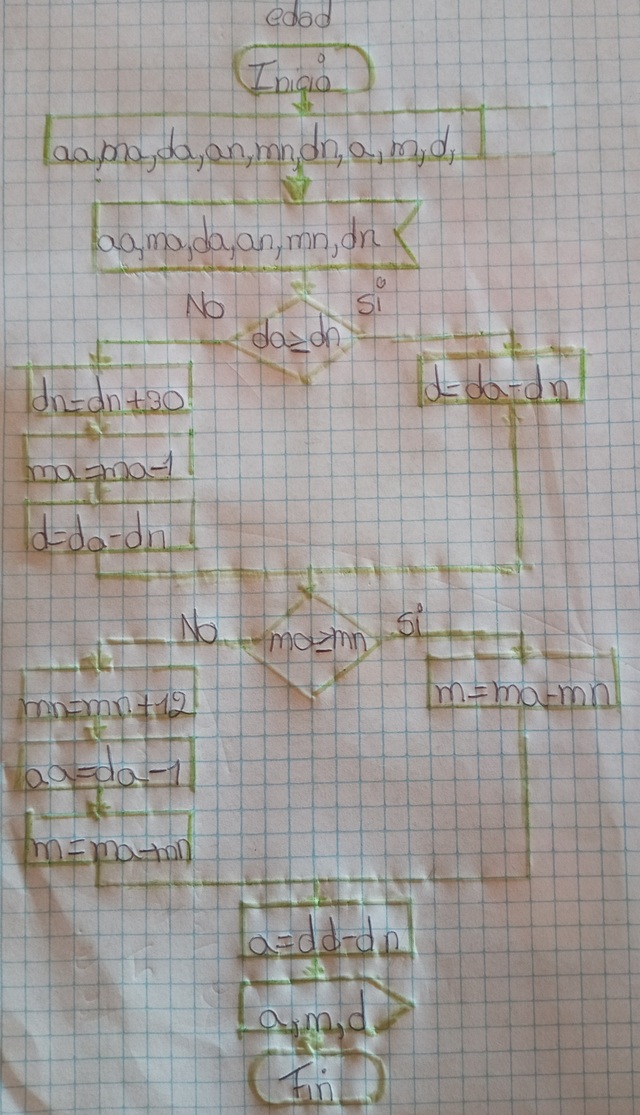 edad
Inicio
aa,ma,da,an,mn,dn,a,m,d,
aa,ma,da,an,mn,dn
No
Si
da≥dn
dn=dn+30
d=da-dn
ma=ma-1
d=da-dn
No
Si
ma≥mn
mn=mn+12
m=ma-mn
aa=da-1
m=ma-mn
a=dd-dn
a,m,d
Fin